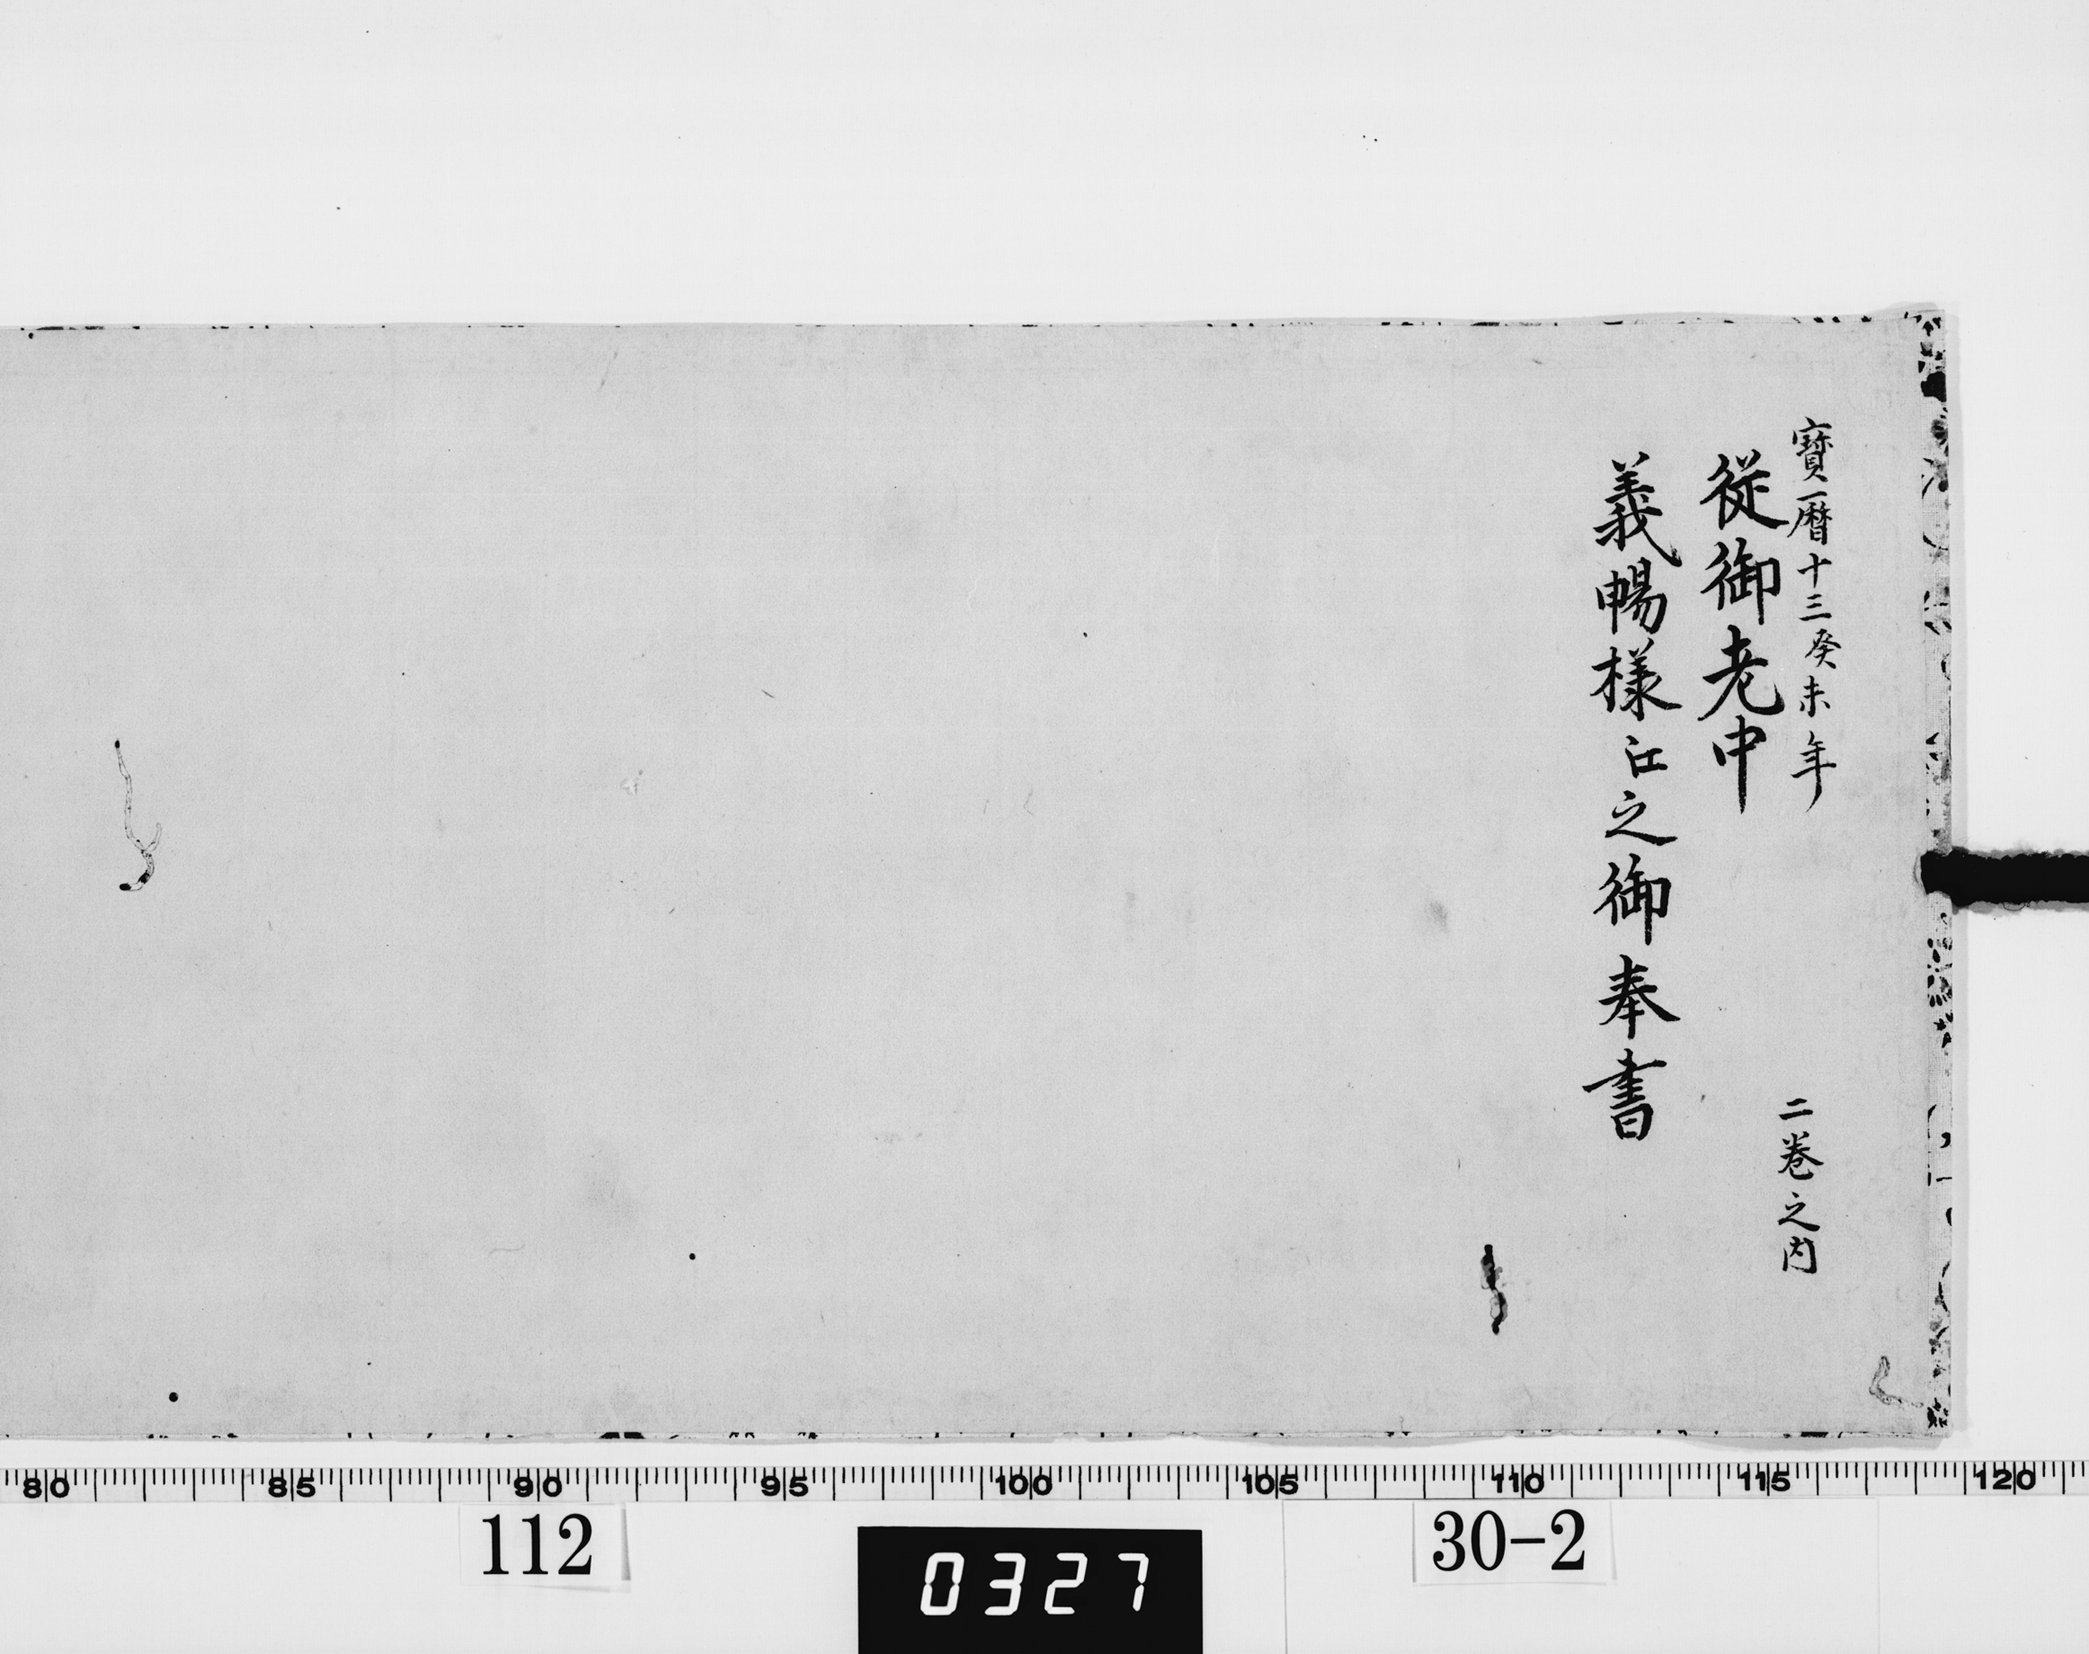 寶暦十三癸未年
二巻之内
従御老中
義暢様江之御奉書
80 85 90 95 100 105 110 115 120
112
0327
30-2